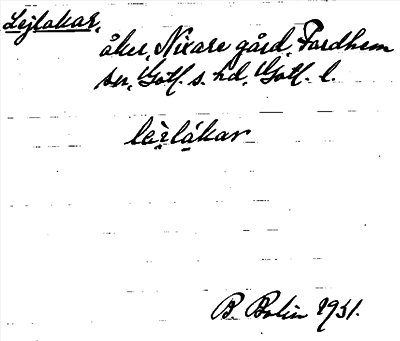 Lejlakar,
åker, Nixare gård, Fardhem
sn, Gotl. s. hd, Gotl. l.
leʹlákar
B. Bolin 1931.